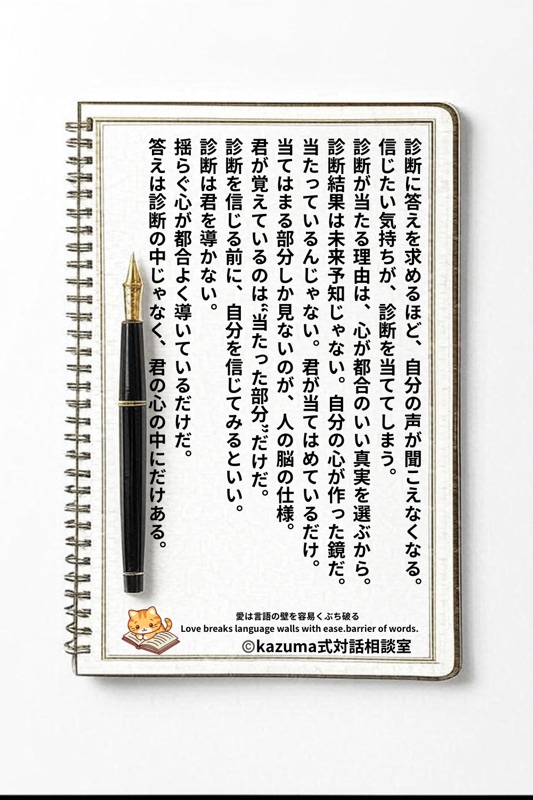 診断に答えを求めるほど、自分の声が聞こえなくなる。
信じたい気持ちが、診断を当ててしまう。
診断が当たる理由は、心が都合のいい真実を選ぶから。
診断結果は未来予知じゃない。自分の心が作った鏡だ。
当たっているんじゃない。君が当てはめているだけ。
当てはまる部分しか見ないのが、人の脳の仕様。
君が覚えているのは“当たった部分”だけだ。
診断を信じる前に、自分を信じてみるといい。
診断は君を導かない。
揺らぐ心が都合よく導いているだけだ。
答えは診断の中じゃなく、君の心の中にだけある。
愛は言語の壁を容易くぶち破る
Love breaks language walls with ease.barrier of words.
©kazuma式対話相談室